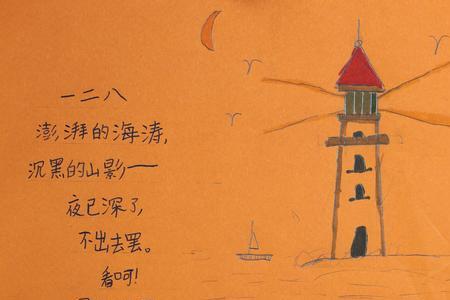 一二八
澎湃的海涛,
沉黑的山影——
夜已深了,
不出去罢。
看呵!